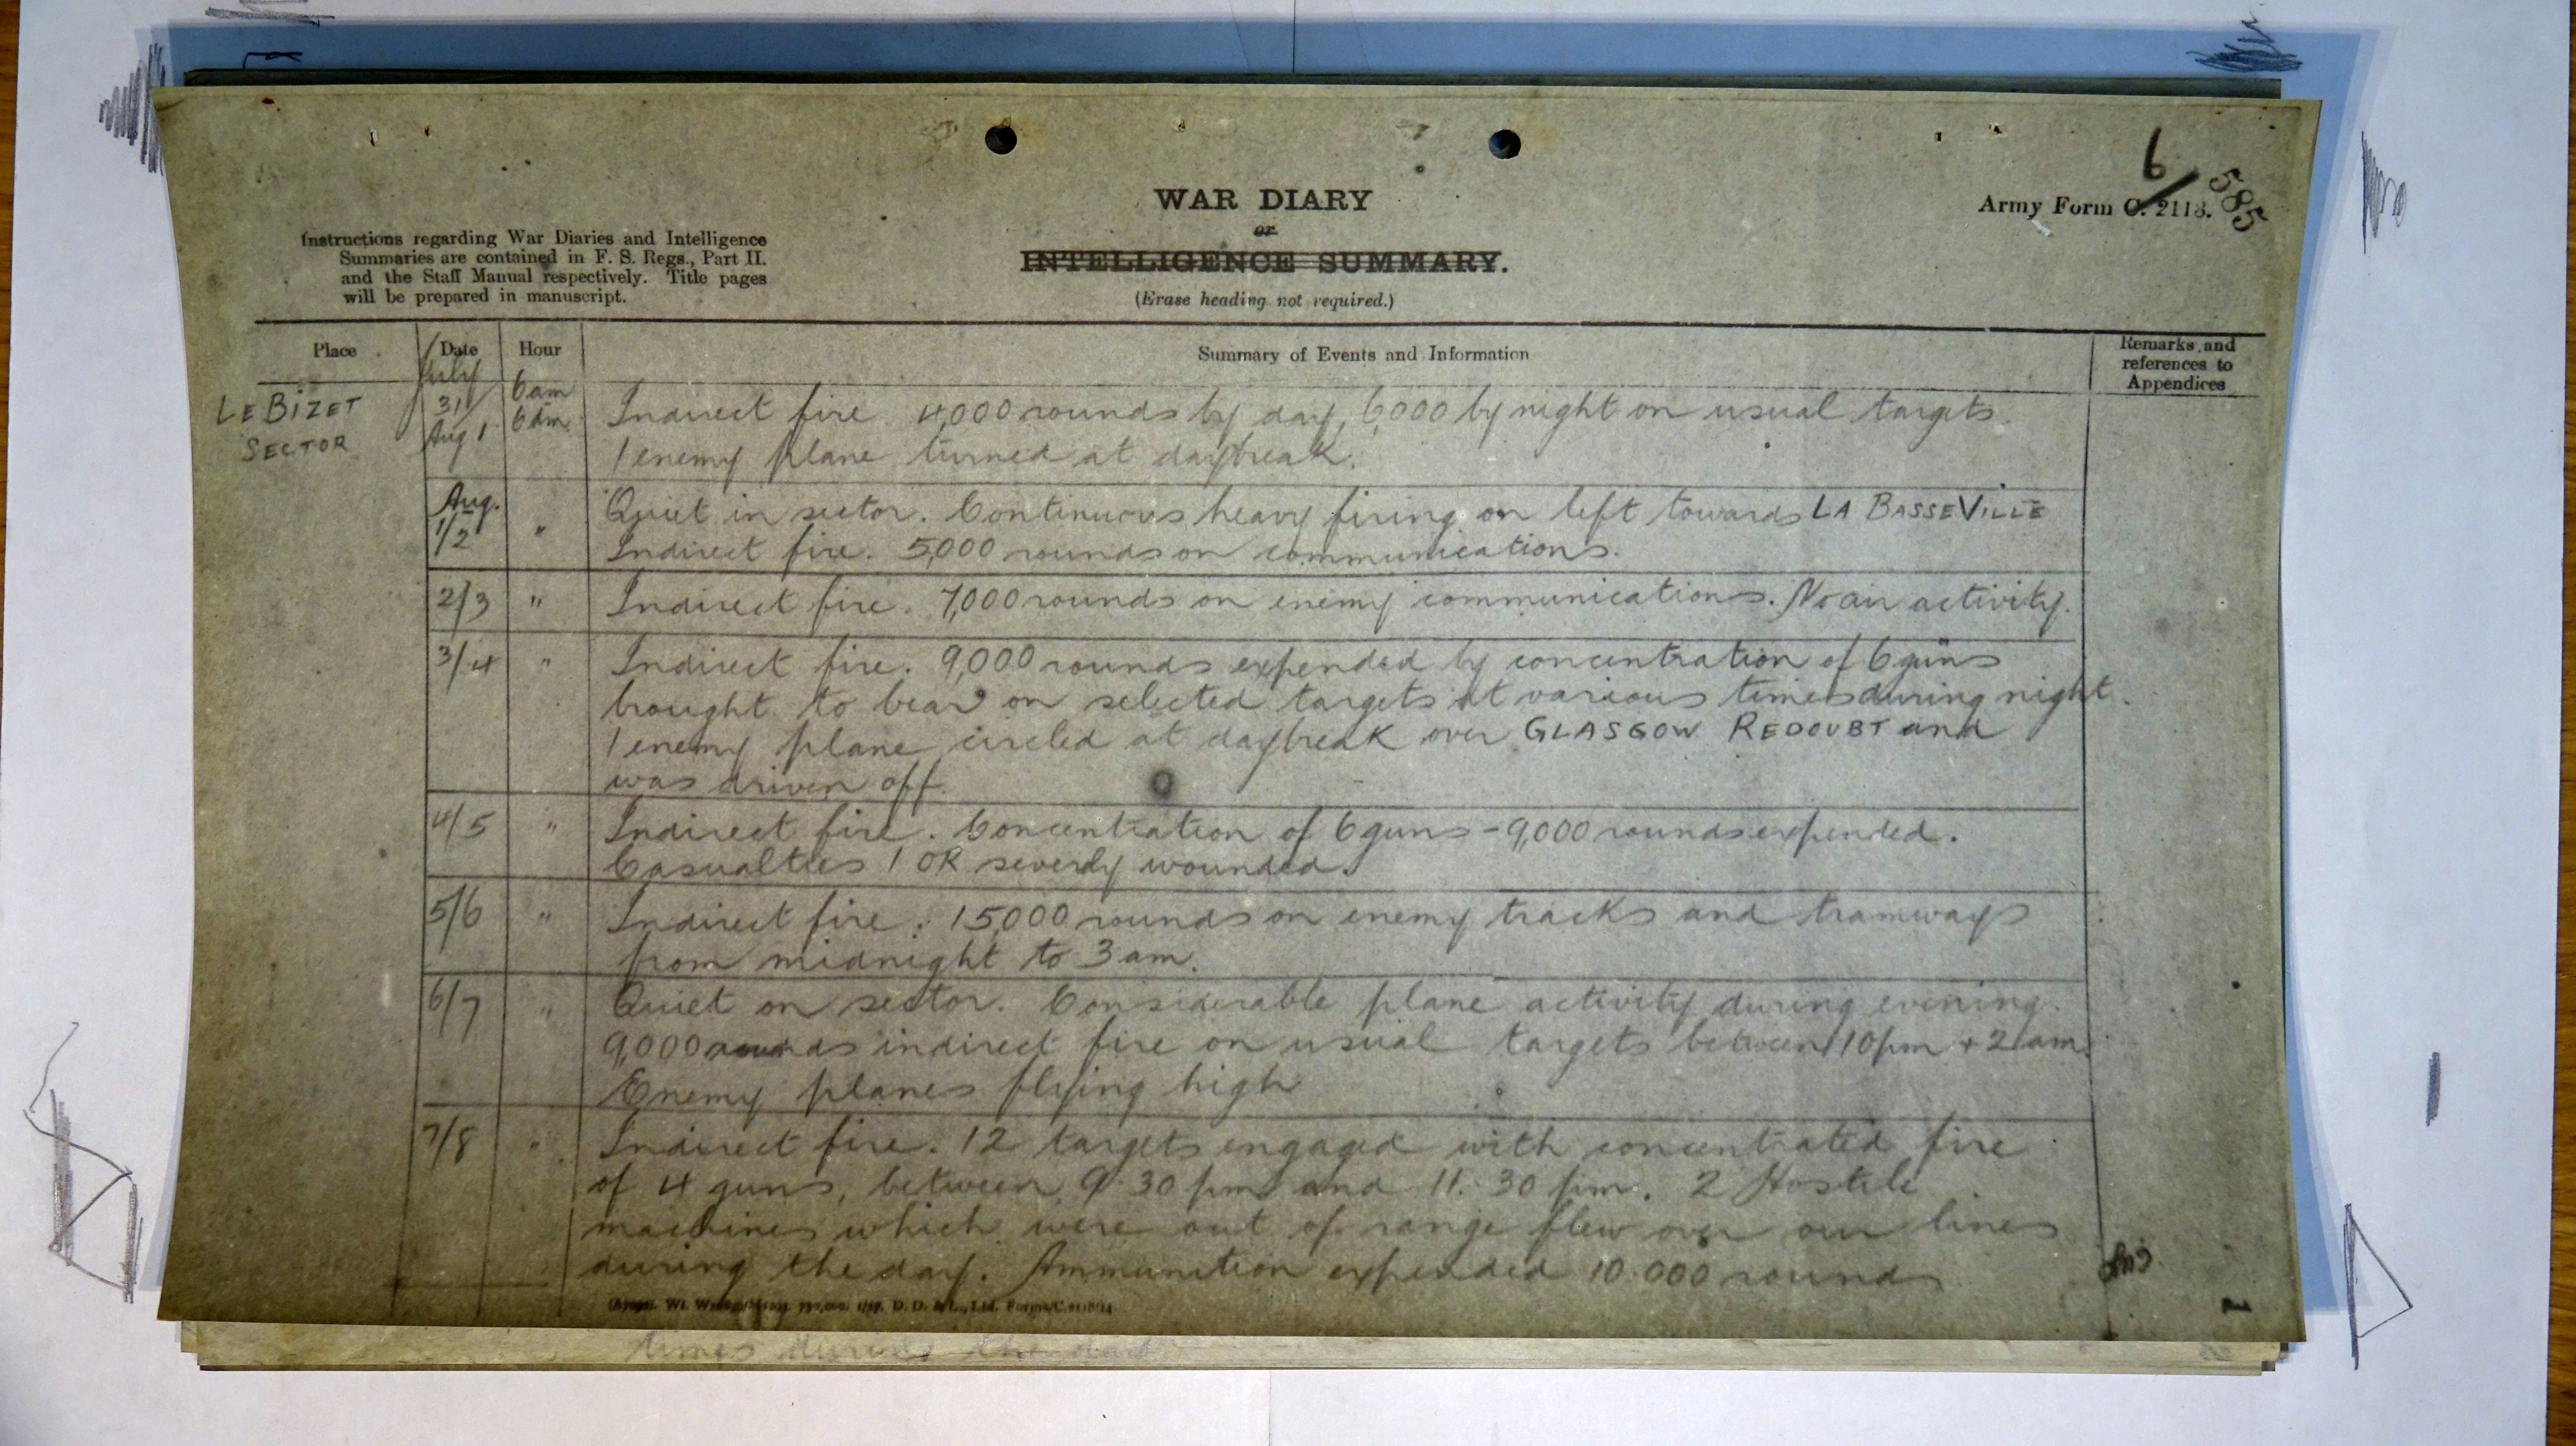 6/585
Army Form C. 2118.
WAR DIARY
or
INTELLIGENCE SUMMARY.
(Erase heading not required.)
Instructions regarding War Diaries and Intelligence
Summaries are contained in F. S. Regs., Part II.
and the Staff Manual respectively. Title pages
will be prepared in manuscript.
Place Date Hour Summary of Events and Information Remarks and references to Appendices
LE BIZET SECTOR
July 31/Aug 1 6am 6am Indirect fire 4,000 rounds by day, 6,000 by night on usual targets.
1 enemy plane turned at daybreak.
Aug. 1/2 " Quiet in sector. Continuous heavy firing on left towards LA BASSEVILLE
Indirect fire. 5,000 rounds on communications.
2/3 " Indirect fire. 7,000 rounds on enemy communications. No air activity.
3/4 " Indirect fire. 9,000 rounds expended by concentration of 6 guns
brought to bear on selected targets at various times during night.
1 enemy plane circled at daybreak over GLASGOW REDOUBT and
was driven off.
4/5 " Indirect fire. Concentration of 6 guns - 9,000 rounds expended.
Casualties 1 OR severly wounded.
5/6 " Indirect fire: 15,000 rounds on enemy tracks and tramways
from midnight to 3 am.
6/7 " Quiet on sector. Considerable plane activity during evening.
9,000 rounds indirect fire on usual targets between 10pm + 2 am.
Enemy planes flying high
7/8 " Indirect fire. 12 targets engaged with concentrated fire
of 4 guns, between 9.30 pm and 11.30 pm. 2 Hostile
machines which were out of range flew over our lines
during the day. Ammunition expended 10.000 rounds
D. D. & L., Ltd.
times during the day